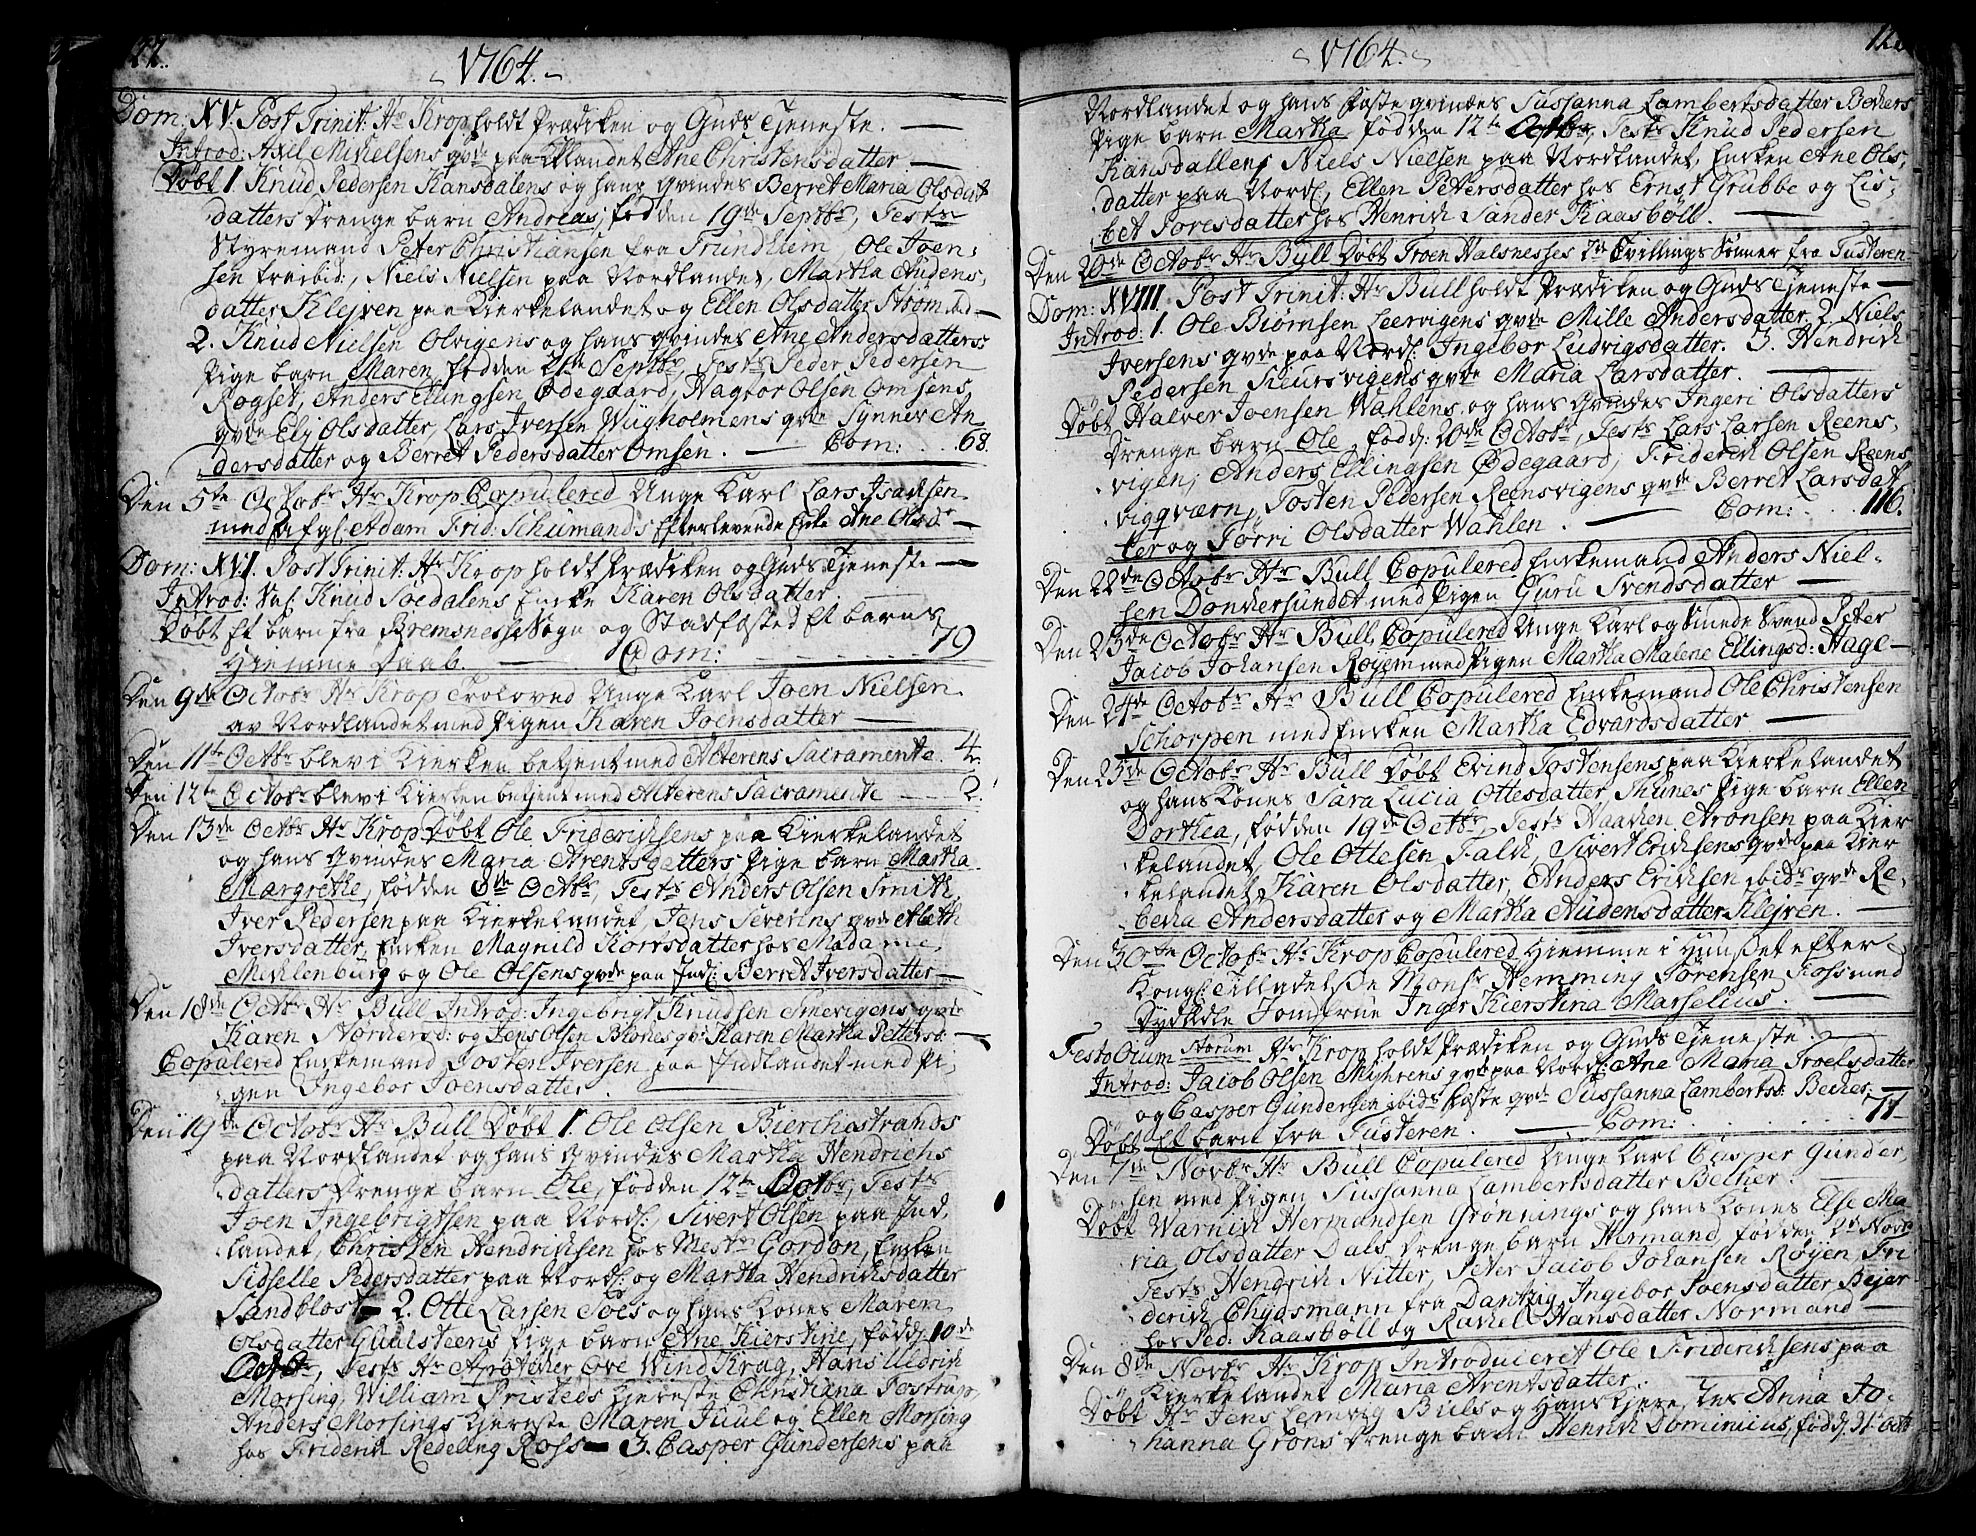 122.
1764.
Dom: XV. Post Trinit: Hr Krop holdt Prædiken og Guds Tjeneste.
Introd: Axel Michelsens qvde paa Kllandet Ane Christensdatter
Döbt 1 Knud Pedersen Hansdalens og hans Qvindes Berret Maria Olsdat
datters Drenge barn Andreas, födden 19de Septbr, Tests
Styremand Peter Christiansen fra Trundhiem, Ole Joen-
sen fra ibid:, Niels Nielsen paa Nordlandet, Martha Audens-
datter Klejven paa Kierkelandet og Ellen Olsdatter Ström ibid
2. Knud Nielsen Olvigens og hans qvindes Ane Andersdatters
Pige barn Maren, födden 21de Septbr, Tests Peder Pedersen
Rogset, Anders Ellingsen Ödegaard, Hagtor Olsen Omsens
qvde Eli Olsdatter, Lars Iversen Wiigholmens qvde Synnev An-
dersdatter og Berret Pedersdatter Omsen. Com: 68.
Den 5te Octobr Hr Krop Copulered Unge Karl Lars Isachsen
med Afgl. Adam Frid: Schumands Efterlevende Enke Ane Olsd:
Dom: XVI. Post Trinit: Hr Krop holdt Prædiken og Guds Tjeneste
Introd: Sal. Knud Soedalens Encke Karen Olsdatter.
Döbt Et barn fra Bremsnesse Sogn og Stadfæsted Et barns
Hiemme Daab. Com: 79
Den 9de Octobr Hr Krop Troloved Unge Karl Joen Nielsen
av Nordlandet med Pigen Karen Joensdatter
Den 11te Octbr blev i Kierken betjent med Alterens Sacramente 4.
Den 12te Octobr blev i Kierken betjent med Alterens Sacramente 2.
Den 13de Octobr Hr Krop Döbt Ole Friderichsens paa Kierkelandet
og hans Qvindes Maria Arentsdatters Pige barn Martha
Margrethe, födden 8de Octbr, Tests Anders Olsen Smith,
Iver Pedersen paa Kierkelandet, Jens Severins qvde Aleth
Iversdatter, Encken Magnild Torrsdatter hos Madame
Mechlenburg og Ole Olsens qvde paa Indl: Berret Iversdatter
Den 18de Octbr Hr Bull Introd: Ingebrigt Knudsen Smevigens qvde
Karen Norherød: og Jens Olsen Biones qv: Karen Martha Pettersd:
Copulered Enckemand Josten Iversen paa Indlandet med Pi-
gen Ingebor Joensdatter.
Den 19de Octobr Hr Bull Döbt 1. Ole Olsen Bierchestrands
paa Nordlandet og hans Qvindes Martha Hendrichs
datters Drenge barn Ole, födden 12te Octobr, Tests
Joen Ingebrigtsen paa Nordl: Sivert Olsen paa Ind-
landet, Christen Hendrichsen hos Mestr Gordon, Encken
Sidselle Pedersdatter paa Nordl: og Martha Hendrichsdatter
Sandblost 2. Otte Larsen Soes og hans Kones Maren
Olsdatter Gudlsteens Pige barn Ane Kierstine, född 10de
Octobr, Tests Hr Apotheker Ove Wind Krag, Hans Uldrich
Morsing, William Pristeds Kjereste Christiana Tostrup,
Anders Morsings Kjereste Maren Juul og Ellen Morsing
hos Friderich Redeling Ross 3. Casper Gundersens paa
123
1764.
Nordlandet og hans fæste qvindes Sussanna Lambertsdatter Bechers
Pige barn Martha födden 12te Octbr, Tests Knud Pedersen
Hansdallens Niels Nielsen paa Nordlandet, Encken Ane Ols-
datter paa Nordl, Ellen Petersdatter hos Ernst Grubbe og Lis-
bet Joresdatter hos Henrich Sander Kaasböll.
Den 20de Octobr Hr Bull Döbt Troen Halsnesses 2de Tvillings Sönner fra Tusteren
Dom: XVIII. Post Trinit: Hr Bull holdt Prædiken og Guds Tjeneste
Introd: 1. Ole Biörnsen Leervigens qvde Mille Andersdatter. 2. Niels
Iversens qvde paa Nordl: Ingebor Ludvigsdatter. 3. Hendrich
Pedersen Skeursvigens qvde Maria Larsdatter.
Döbt Halver Joensen Wahlens og hans Qvindes Ingeri Olsdatters
Drenge barn Ole, född: 20de Octobr, Tests Lars Larsen Reens-
vigen, Anders Ellingsen Ödegaard, Friderich Olsen Reens
vigqværn, Josten Pedersen Reensvigens qvde Berret Larsdat
ter og Jörri Olsdatter Wahlen. Com: 116.
Den 22de Octobr Hr Bull Copulered Enckemand Anders Niel-
sen Donckersundet med Pigen Guru Svendsdatter
Den 23de Octobr Hr Bull Copulered Unge Karl og Smede Svend Peter
Jacob Johansen Röyem med Pigen Martha Malene Ellingsd: Hage
Den 24de Octobr Hr Bull Copulered Enckemand Ole Christensen
Schorpen med Encken Martha Edvardsdatter
Den 25de Octobr Hr Bull Döbt Evind Tostensens paa Kierkelandet
og hans Kones Sara Lucia Ottesdatter Thunes Pige barn Ellen
Dorthea, födden 19de Octbr, Tests Haavien Aronsen paa Kier
kelandet, Ole Ottesen Falch, Sivert Erichsens qvde paa Kier
kelandet, Karen Olsdatter, Anders Erichsen ibids qvde Re-
becha Andersdatter og Martha Audensdatter Klejven.
Den 30te Octobr Hr Krop Copulered Hiemme i Huuset efter
Kongl: Tilladelse Monsr Hemming Sörensen Ross med
Dydædle Jomfrue Inger Kierstina Marselius.
Festo Omnium Storum Hr Krop holdt Prædiken og Guds Tjeneste.
Introd: Jacob Olsen Myhrens qvde paa Nordl: Ane Maria Troelsdatter
og Casper Gundersen ibids fæste qvde Sussanna Lambertsd: Becher,
Döbt Et barn fra Tusteren. Com: 77
Den 7de Novbr Hr Bull Copulered Unge Karl Casper Gunder-
sen med Pigen Sussanna Lambertsdatter Becher.
Döbt Warnich Hermandsen Grönnings og hans Kones Else Ma
ria Olsdatter Dals Drenge barn Hermand, födden 2de Novbr
Tests Hendrich Nitter, Peter Jacob Johansen Röyem Fri
derich Chydsmann fra Dantzig, Ingebor Joensdatter Bejer
hos Ped: Kaasböll og Rachel Hansdatter Normand
Den 8de Novbr Hr Krop Introduceret Ole Friderichsens paa
Kierkelandet Maria Arentsdatter.
Döbt Hr Jens Lemvig Buls og Hans Kjereste Anna Jo-
hanna Grons Drenge barn Henrich Dominicus, född: 31 Octb